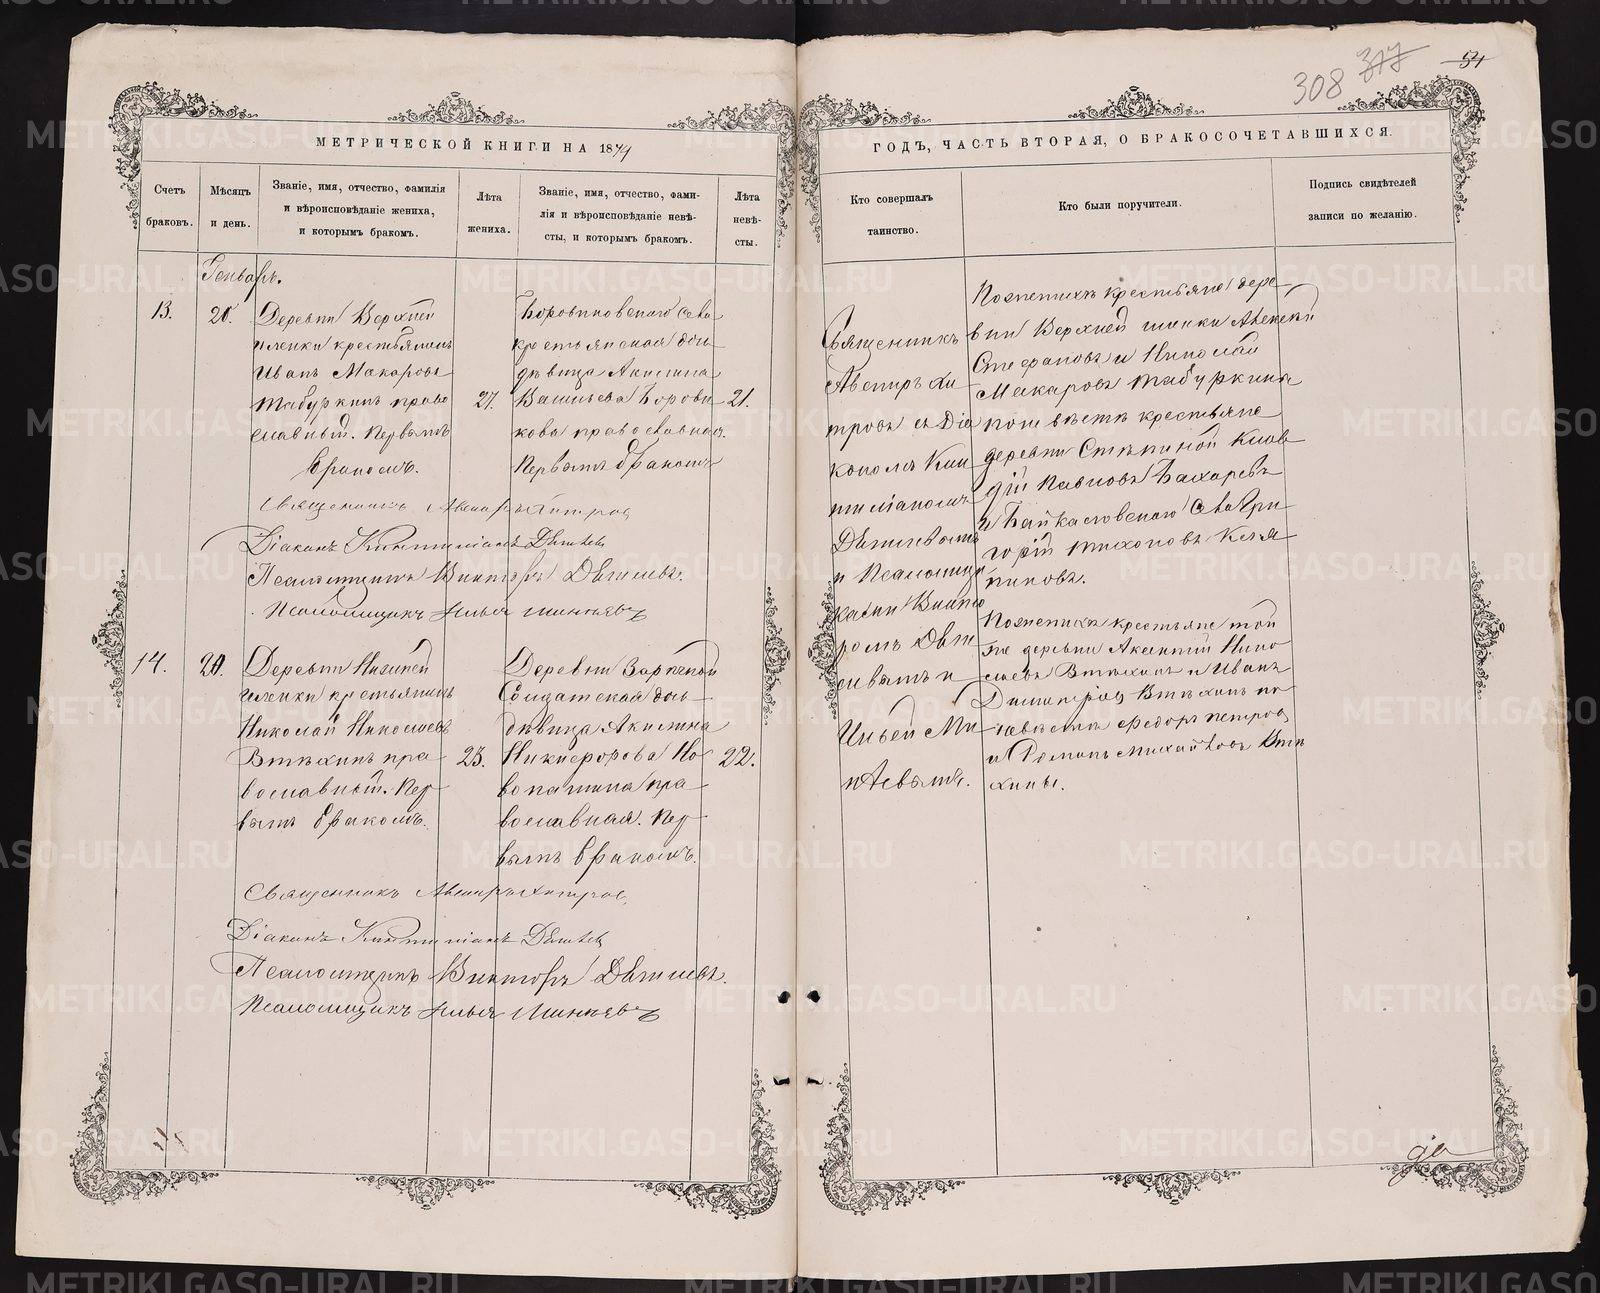 308 317 54
МЕТРИЧЕСКОЙ КНИГИ НА 1874
ГОДЪ, ЧАСТЬ ВТОРАЯ, О БРАКОСОЧЕТАВШИХСЯ.
Счетъ
браковъ.
Мѣсяцъ
и день.
Званіе, имя, отчество, фамилія
и вѣроисповѣданіе жениха,
и которымъ бракомъ.
Лѣта
жениха.
Званіе, имя, отчество, фами-
лія и вѣроисповѣданіе невѣ-
сты, и которымъ бракомъ.
Лѣта
невѣ-
сты.
Кто совершалъ
таинство.
Кто были поручители.
Подпись свидѣтелей
записи по желанію.
Генварь.
13.
20.
Деревни Верхней
иленки крестьянинъ
Иванъ Макаровъ
Табуркинъ право
славный. Первымъ
бракомъ.
27.
Боровиковскаго села
крестьянская дочь
дѣвица Акилина
Васильева Борови
кова православная.
Первымъ бракомъ
21.
Священникъ
Авениръ Хи
тровъ съ Діа
кономъ Кин
тиліаномъ
и Псаломщи
ками Викто
ромъ
и
Ильей Ми
Поженихѣ крестьяне дере
вни Верхней иленки Алексѣй
Стефановъ и Николай
Макаровъ Табуркины
по невѣстѣ крестьяне
деревни Степиной Клав
дій Павловъ Бахаревъ
и Байкаловскаго села Гри
горій Тихоновъ
Священникъ Авениръ Хитровъ
Діаконъ Кинтиліанъ
Псаломщикъ Викторъ
Псаломщикъ Илья
14.
20.
Деревни Нижней
иленки крестьянинъ
Николай Николаевъ
Втѣхинъ пра
вославный. Пер
вымъ бракомъ.
23.
Деревни Заречной
Солдатская дочь
дѣвица Акилина
Никифорова Но
вопашина пра
вославная. Пер
вымъ бракомъ.
22.
Поженихѣ крестьяне той
же деревни Аксентій Нико
лаевъ Втѣхинъ и Иванъ
Димитріевъ Втѣхинъ по
невѣстѣ Федоръ Петровъ
и Романъ Михайловъ Втѣ
хины.
Священникъ Авениръ Хитровъ
Діаконъ Кинтиліанъ
Псаломщикъ Викторъ
Псаломщикъ Илья
METRIKI.GASO-URAL.RU